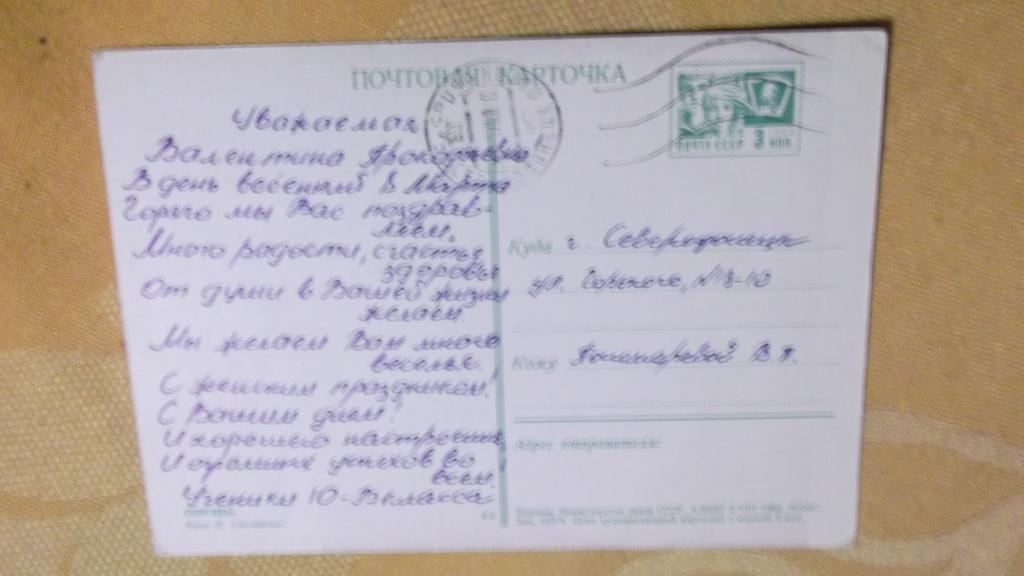 ПОЧТОВАЯ КАРТОЧКА
Уважаемая
Валентина Прокофьевна
В день весенний 8 Марта
Горячо мы Вас поздрав-
ляем.
Много радости, счастья
здоровья
От души в Вашей жизни
желаем.
Мы желаем Вам много
веселья.
С женским праздником!
С Вашим днём!
И хорошего настроения
И огромных успехов во
всем.
Ученики 10-В класса
ПОЧТА СССР 3 КОП
Куда г. Северодонецк
ул. Горького, 18-10
Кому Пономаревой В. П.
Адрес отправителя: